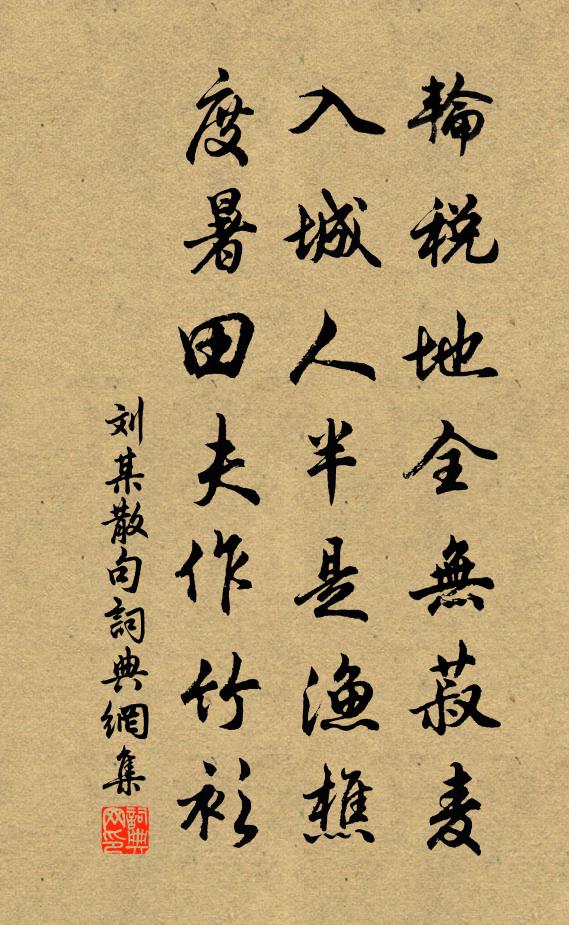 輪税地全無菽麦
入城人半是漁樵
度暑田夫作竹衫
刘某散句詞典網集
詞典网印